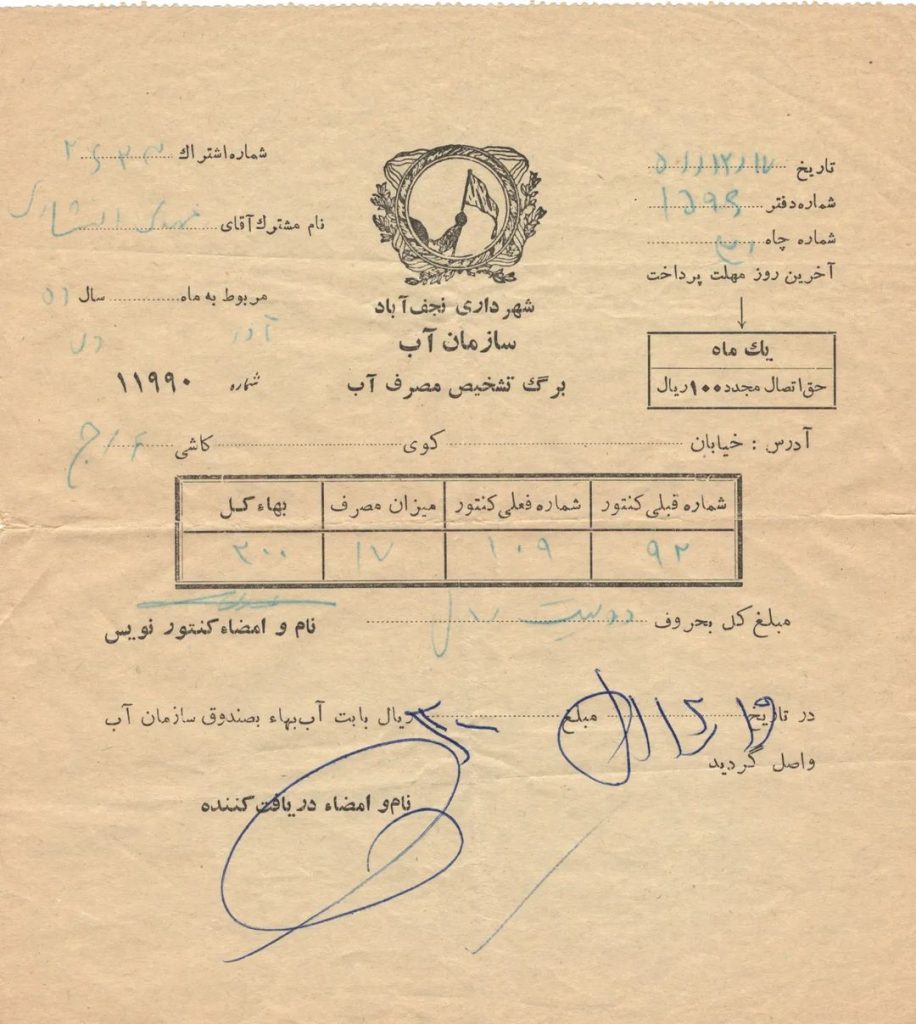 تاریخ ۵۱/۱۲/۱۷
شماره دفتر
شماره چاه
آخرین روز مهلت پرداخت
یك ماه
حق اتصال مجدد ۱۰۰ ریال
شهرداری نجف‌آباد
سازمان آب
برگ تشخیص مصرف آب
شماره اشتراك
نام مشترك آقای
مربوط به ماه سال ۵۱
آذر دی
شماره ۱۱۹۹۰
آدرس : خیابان کوی کاشی
شماره قبلی کنتور شماره فعلی کنتور میزان مصرف بهاء کل
۹۲ ۱۰۹ ۱۷ ۲۰۰
مبلغ کل بحروف دویست ریال
نام و امضاء کنتور نویس
در تاریخ مبلغ ریال بابت آب‌بهاء بصندوق سازمان آب
واصل گردید
نام و امضاء دریافت کننده